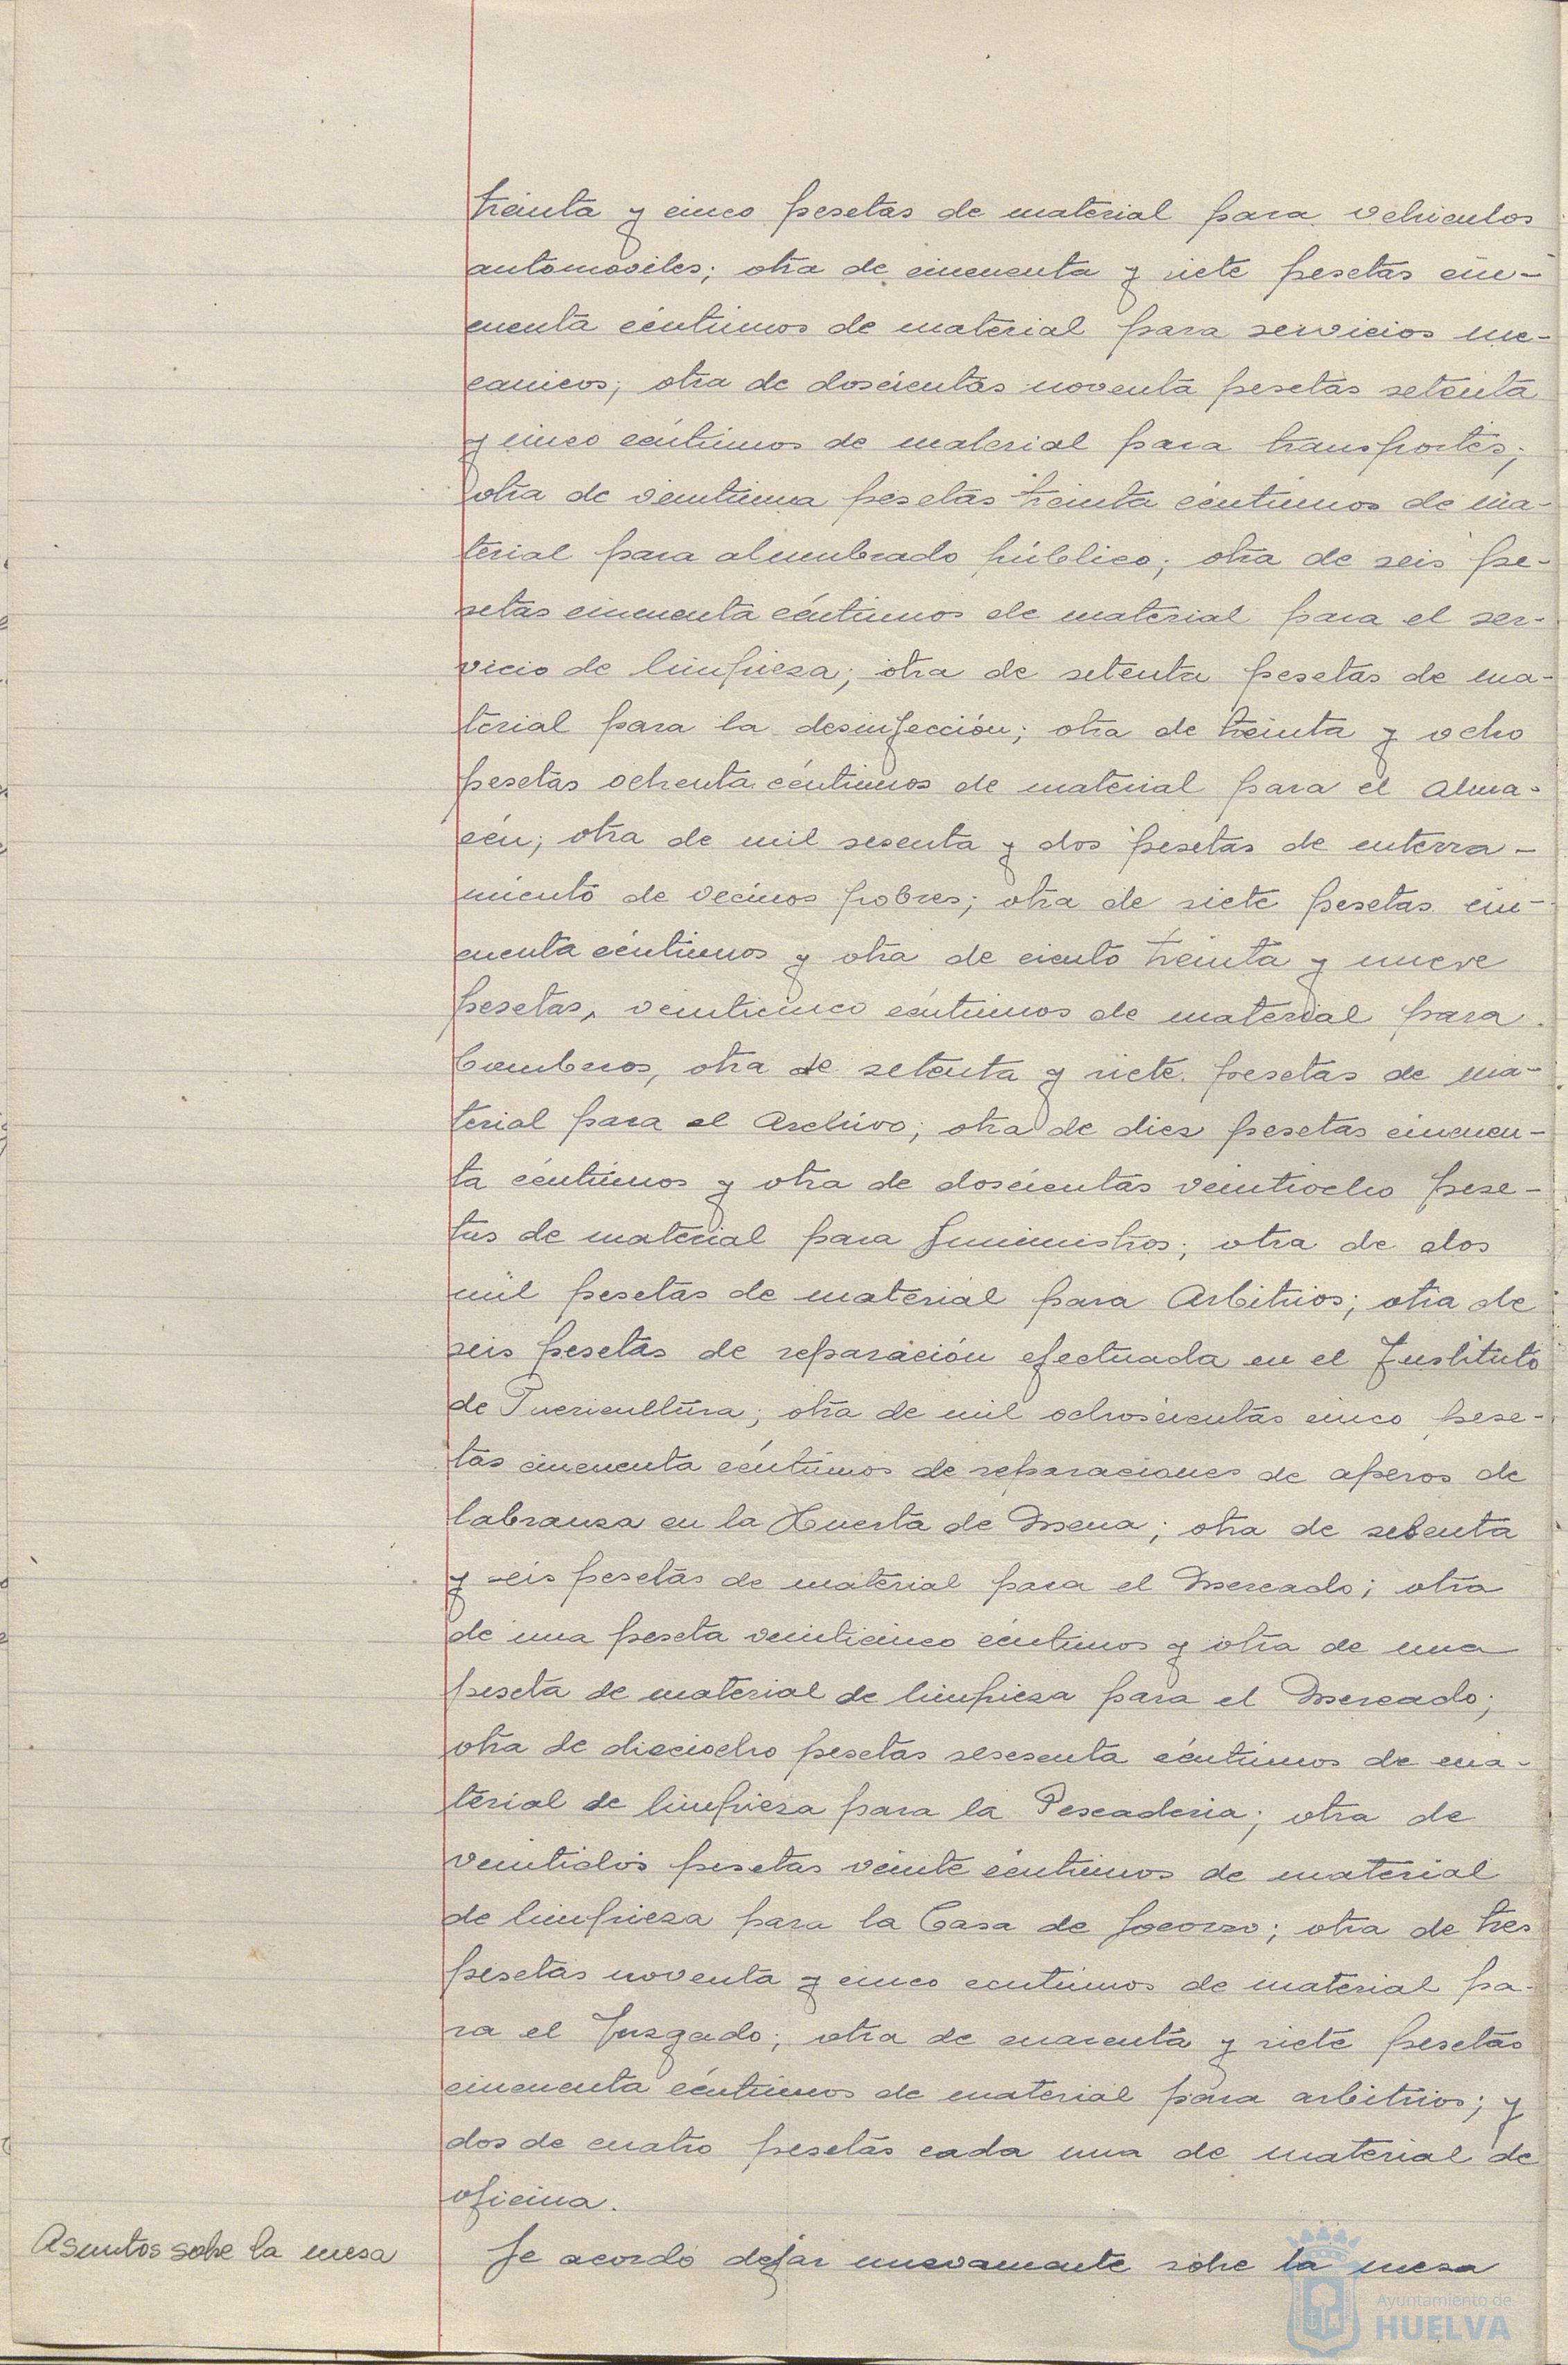 treinta y cinco pesetas de material para vehiculos
automoviles; otra de cincuenta y siete pesetas cin-
cuenta céntimos de material para servicios me-
canicos; otra de doscientas noventa pesetas setenta
y cinco céntimos de material para transportes;
otra de veintiuna pesetas treinta céntimos de ma-
terial para alumbrado público; otra de seis pe-
setas cincuenta céntimos de material para el ser-
vicio de limpieza; otra de setenta pesetas de ma-
terial para la desinfección; otra de treinta y ocho
pesetas ochenta céntimos de material para el Alma-
cén; otra de mil sesenta y dos pesetas de enterra-
miento de vecinos pobres; otra de siete pesetas cin-
cuenta céntimos y otra de ciento treinta y nueve
pesetas, veinticinco céntimos de material para
Bomberos, otra de setenta y siete pesetas de ma-
terial para el Archivo; otra de diez pesetas cincuen-
ta céntimos y otra de doscientas veintiocho pese-
tas de material para Suministros; otra de dos
mil pesetas de material para Arbitrios; otra de
seis pesetas de reparación efectuada en el Instituto
de Puericultura; otra de mil ochocientas cinco pese-
tas cincuenta céntimos de reparaciones de aperos de
labranza en la Huerta de Mena; otra de setenta
y seis pesetas de material para el Mercado; otra
de una peseta veinticinco céntimos y otra de una
peseta de material de limpieza para el Mercado;
otra de dieciocho pesetas sesesenta céntimos de ma-
terial de limpieza para la Pescaderia; otra de
veintidós pesetas veinte céntimos de material
de limpieza para la Casa de Socorro; otra de tres
pesetas noventa y cinco centimos de material pa-
ra el Juzgado; otra de cuarenta y siete pesetas
cincuenta céntimos de material para arbitrios; y
dos de cuatro pesetas cada una de material de
oficina.
Asuntos sobre la mesa
Se acordó dejar nuevamente sobre la mesa
Ayuntamiento de
HUELVA